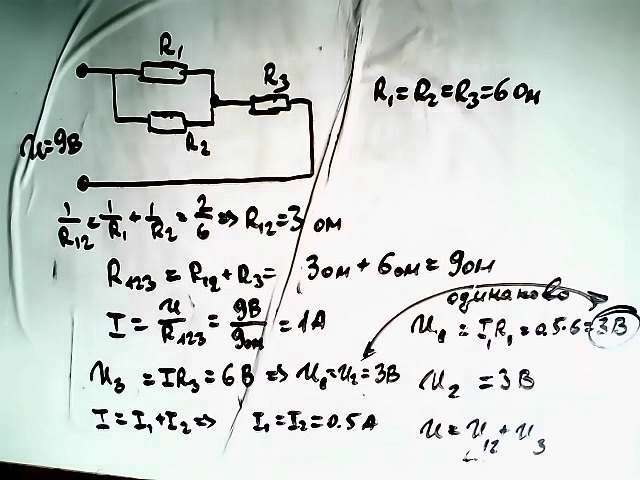 R₁
R₃
R₁=R₂=R₃=6 Ом
R₂
U=9В
1/R₁₂ = 1/R₁ + 1/R₂ = 2/6 => R₁₂=3 Ом
R₁₂₃ = R₁₂+R₃= 3ом + 6ом = 9ом
одинаково
I = U/R₁₂₃ = 9В/9ом = 1А
U₁ = I₁R₁ = 0.5·6=3В
U₃ = IR₃ = 6В => U₁=U₂=3В
U₂ = 3В
I = I₁+I₂ => I₁=I₂=0.5А
U = U₁₂ + U₃